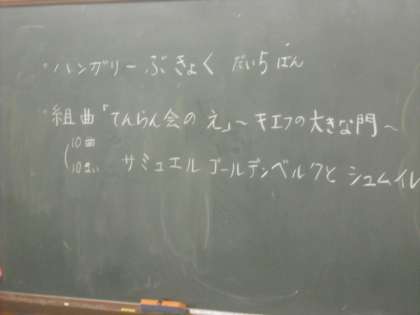 ・ハンガリーぶきょく だい5ばん
・組曲「てんらん会のえ」~キエフの大きな門~
(10曲
10まい
サミュエルゴールデンベルクとシュムイレ